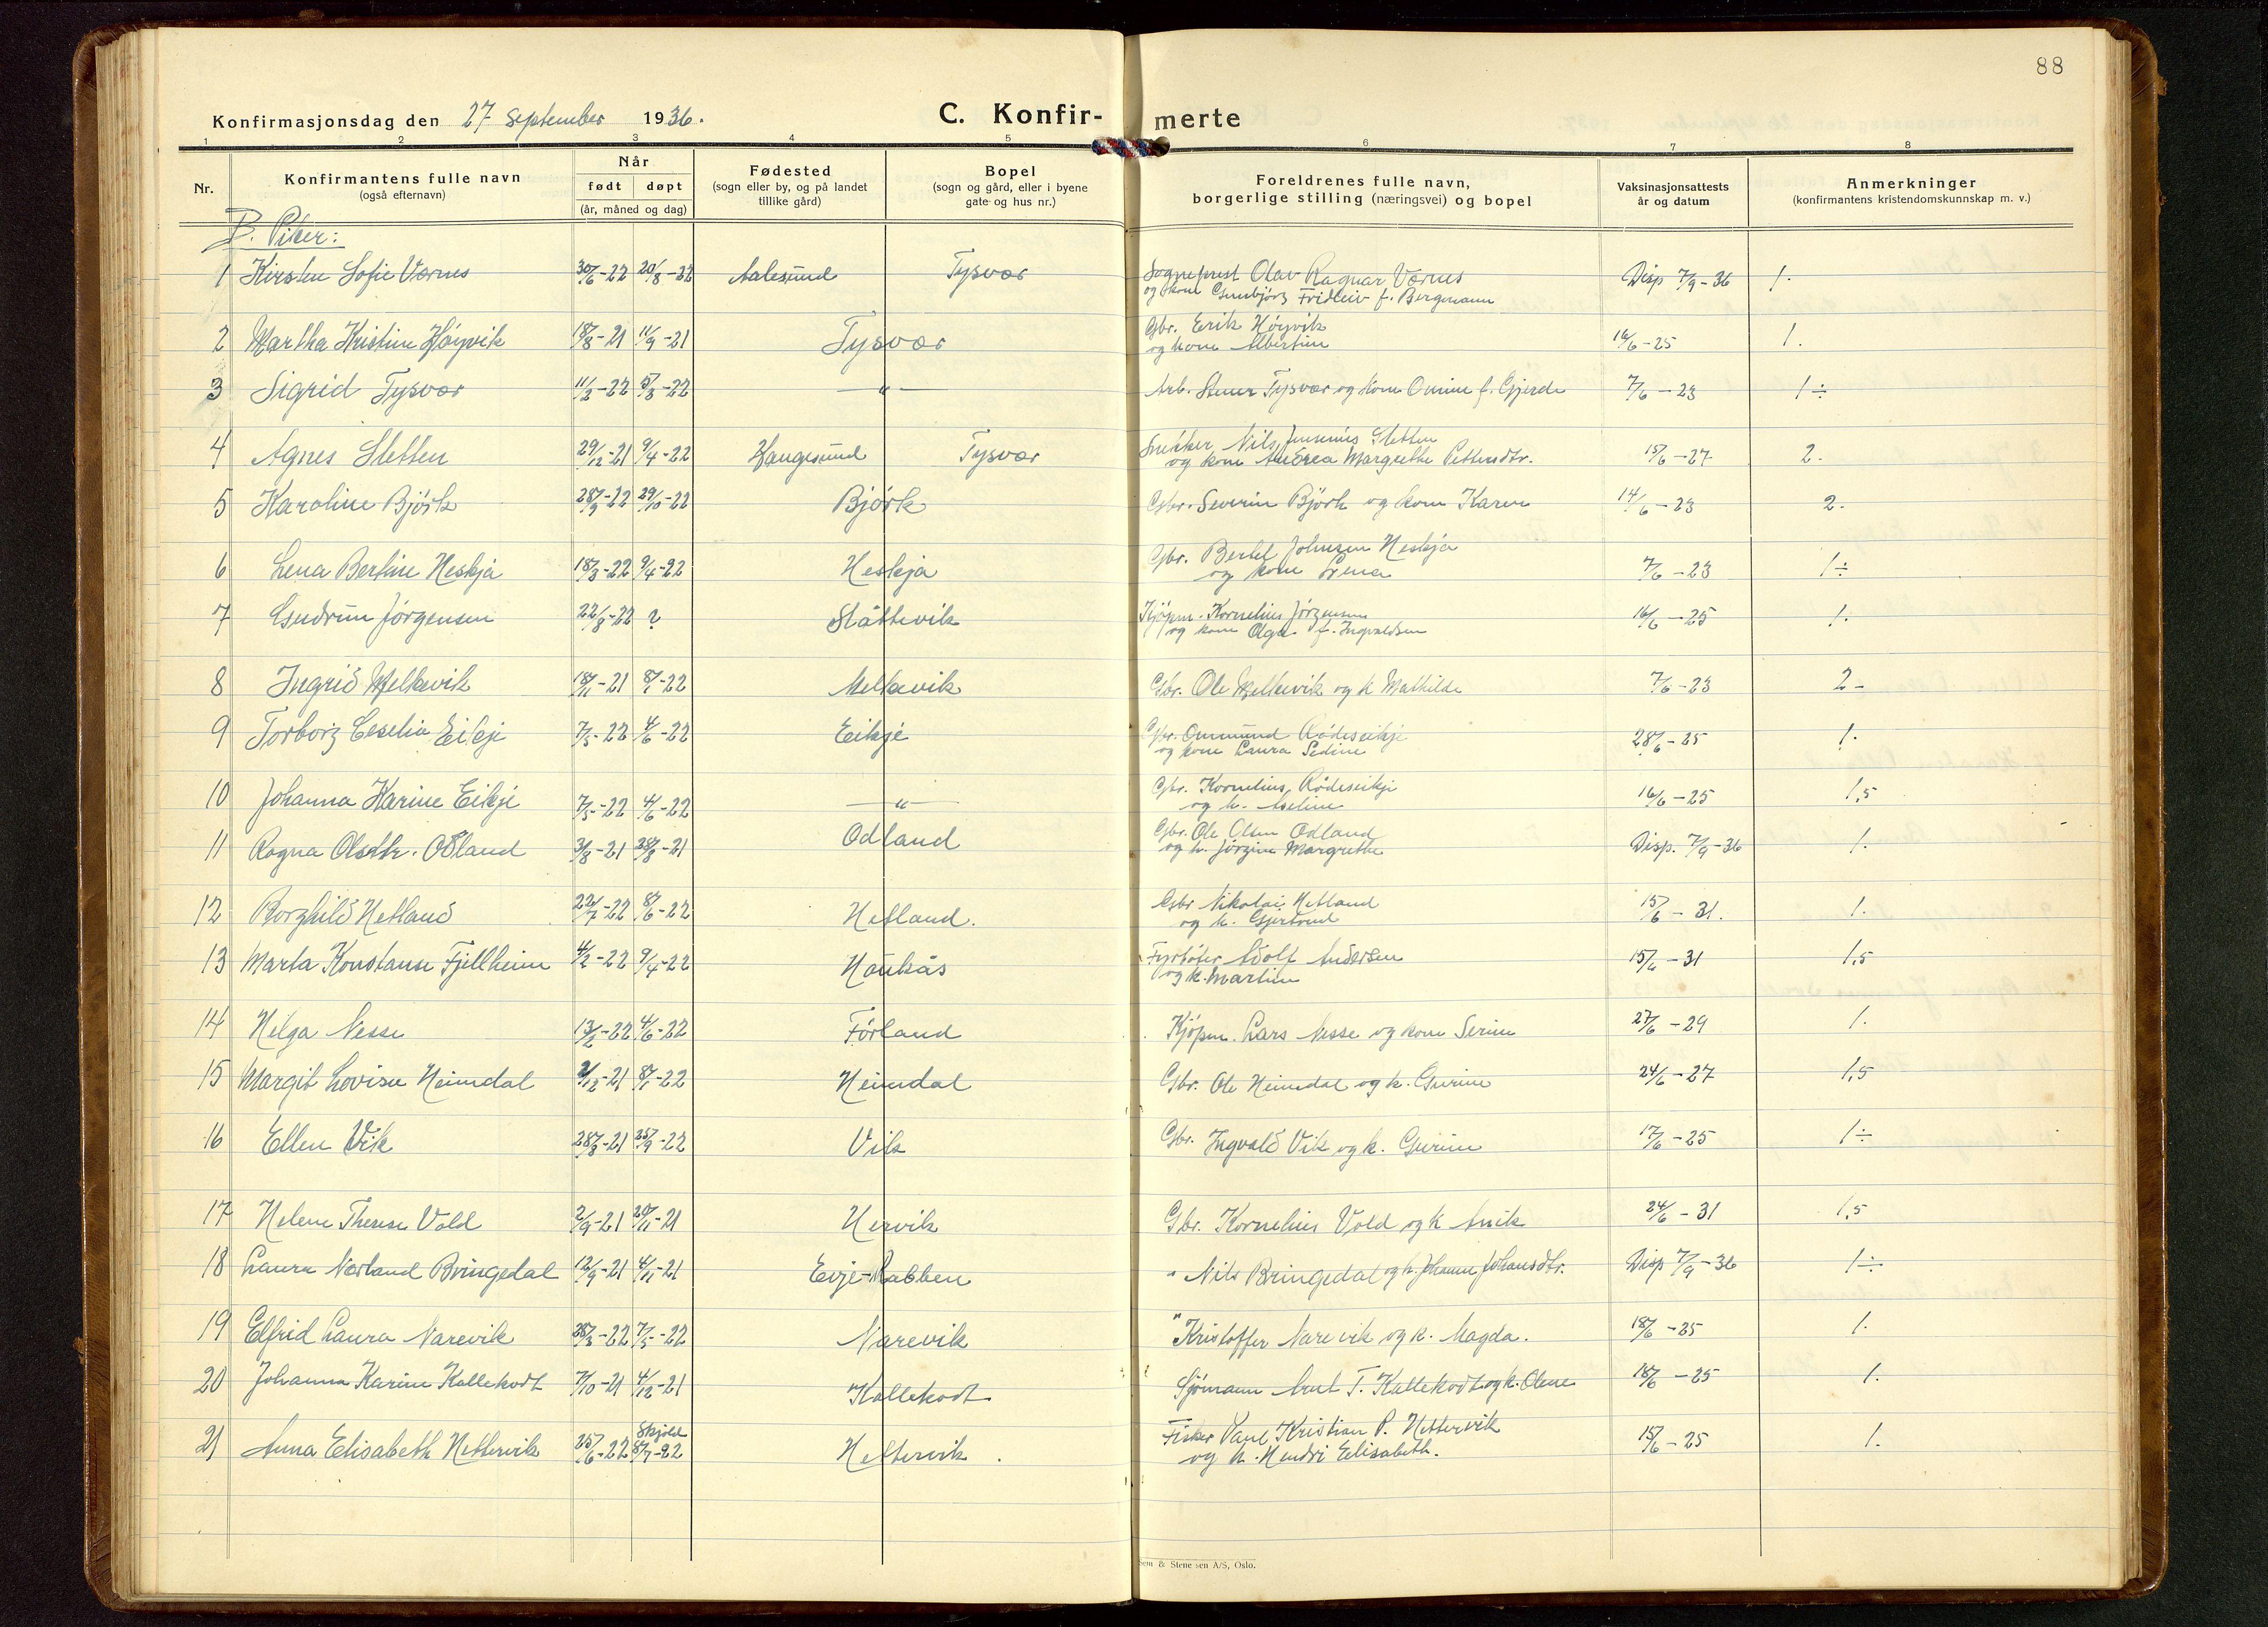 88
Konfirmasjonsdag den 27 september 1936. C. Konfir- merte
1 2 3 4 5 6 7 8
Nr. Konfirmantens fulle navn (også efternavn) Når født døpt (år, måned og dag) Fødested (sogn eller by, og på landet tillike gård) Bopel (sogn og gård, eller i byene gate- og hus nr.) Foreldrenes fulle navn, borgerlige stilling (næringsvei) og bopel Vaksinasjonsattests år og datum Anmerkninger (konfirmantens kristendomskunnskap m. v.)
B. Piker:
1 Kirsten Sofie Værnes 30/6-22 20/8-22 Aalesund Tysvær Sogneprest Olav Ragnar Værnes Disp 7/9-36 1.
og kone Gunbjörg Fridleiv f. Bergmann
2 Martha Kristine Høyvik 18/8-21 11/9-21 Tysvær Gbr. Erik Høyvik 16/6-25 1.
og kone Albertine
3 Sigrid Tysvær 11/2-22 5/3-22 —"— Arb. Stener Tysvær og kone Omine f. Gjerde 7/6-23 1÷
4 Agnes Sletten 29/12-21 9/4-22 Haugesund Tysvær Snekker Nils Jensenius Sletten 15/6-27 2.
og kone Andrea Margrethe Pettersdtr.
5 Karoline Bjørk 28/9-22 29/10-22 Bjørk Gbr. Severin Björk og kone Karen 14/6-23 2.
6 Lena Bertine Heskja 18/3-22 9/4-22 Heskja Gbr. Bertel Johnsen Heskja 7/6-23 1÷
og kone Lena
7 Gudrun Jörgensen 22/8-22 ? Slåttevik Kjøpm. Kornelius Jörgensen 16/6-25 1.
og kone Olga f. Ingvaldsen
8 Ingrid Melkevik 18/11-21 8/1-22 Melkevik Gbr. Ole Melkevik og k Mathilde 7/6-23 2-
9 Torborg Ceselia Eikje 7/5-22 4/6-22 Eikje Gbr. Ommund Rødseikje 28/6-25 1.
og kone Laura Sedine
10 Johanna Karine Eikje 7/5-22 4/6-22 —"— Gbr. Kornelius Rødseikje 16/6-25 1,5
og k. Aseline
11 Ragna Olsdtr. Odland 3/8-21 28/8-21 Odland Gbr. Ole Olsen Odland Disp. 7/9-36 1.
og k. Jörgine Margrethe
12 Borghild Hetland 22/7-22 8/6-22 Hetland. Gbr Nikolai Hetland 15/6-31. 1.
og k. Gjertrud
13 Marta Konstanse Fjellheim 4/2-22 9/4-22 Haukås Fyrbøter Adolf Andersen 15/6-31 1,5
og k. Martine
14 Helga Nesse 13/2-22 4/6-22 Førland Kjøpm. Lars Nesse og kone Serine 27/6-29 1.
15 Margit Lovise Heimdal 2/12-21 8/1-22 Heimdal Gbr. Ole Heimdal og k. Gurine 24/6-27 1,5
16 Ellen Vik 28/8-21 25/9-22 Vik Gbr. Ingvald Vik og k. Gurine 17/6-25 1÷
17 Helene Therese Vold 2/9-21 20/11-21 Hervik Gbr. Kornelius Vold og k Anik 24/6-31 1,5
18 Laura Nærland Bringedal 12/9-21 4/11-21 Eirje-Rabben " Nils Bringedal og k. Johanne Johansdtr. Disp 7/9-36 1÷
19 Elfrid Laura Narevik 28/3-22 7/5-22 Narevik " Kristoffer Narevik og k. Magda. 18/6-25 1.
20 Johanna Karine Kallekodt 7/10-21 4/12-21 Kallekodt Sjömann Arnt T. Kallekodt og k. Olene 18/6-25 1.
21 Anna Elisabeth Hettervik 25/6-22 Skjold 8/7-22 Hettervik. Fisker Paul Kristian P. Hettervik 15/6-25 1.
og k. Hendri Elisabeth.
Sem & Stenersen A/S, Oslo.